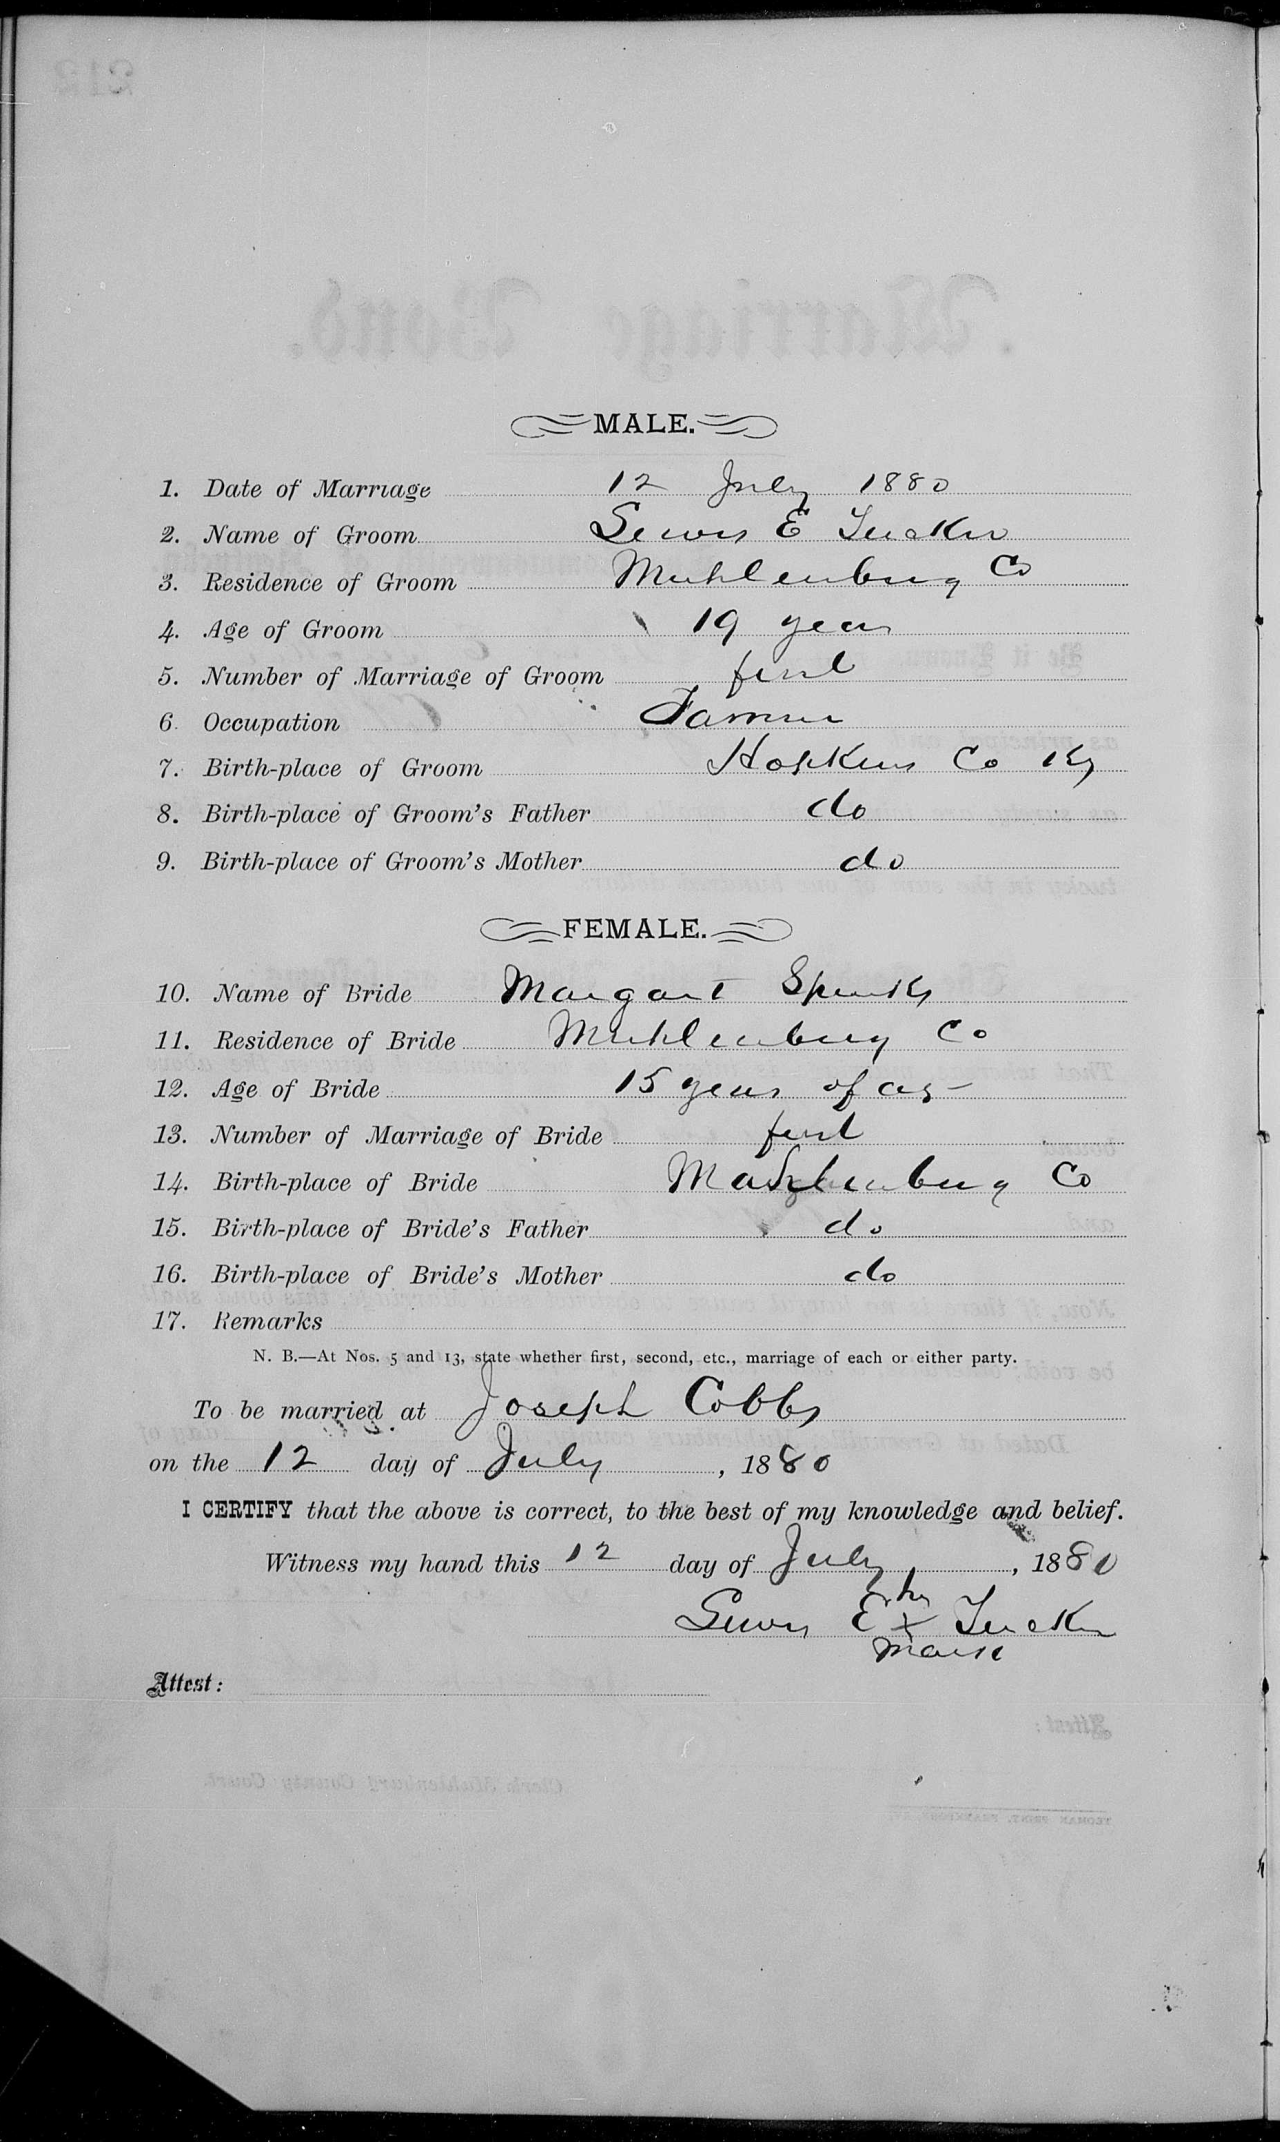 MALE.
1. Date of Marriage 12 July 1880
2. Name of Groom Lewis E Tucker
3. Residence of Groom Muhlenburg Co
4. Age of Groom 19 years
5. Number of Marriage of Groom first
6. Occupation Farmer
7. Birth-place of Groom Hopkins Co Ky
8. Birth-place of Groom's Father do
9. Birth-place of Groom's Mother do
FEMALE.
10. Name of Bride Margaret Spinks
11. Residence of Bride Muhlenburg Co
12. Age of Bride 15 years of age
13. Number of Marriage of Bride first
14. Birth-place of Bride Muhlenburg Co
15. Birth-place of Bride's Father do
16. Birth-place of Bride's Mother do
17. Remarks
N. B.—At Nos. 5 and 13, state whether first, second, etc., marriage of each or either party.
To be married at Joseph Cobbs
on the 12 day of July, 1880
I CERTIFY that the above is correct, to the best of my knowledge and belief.
Witness my hand this 12 day of July, 1880
his
Lewis E x Tucker
mark
Attest: